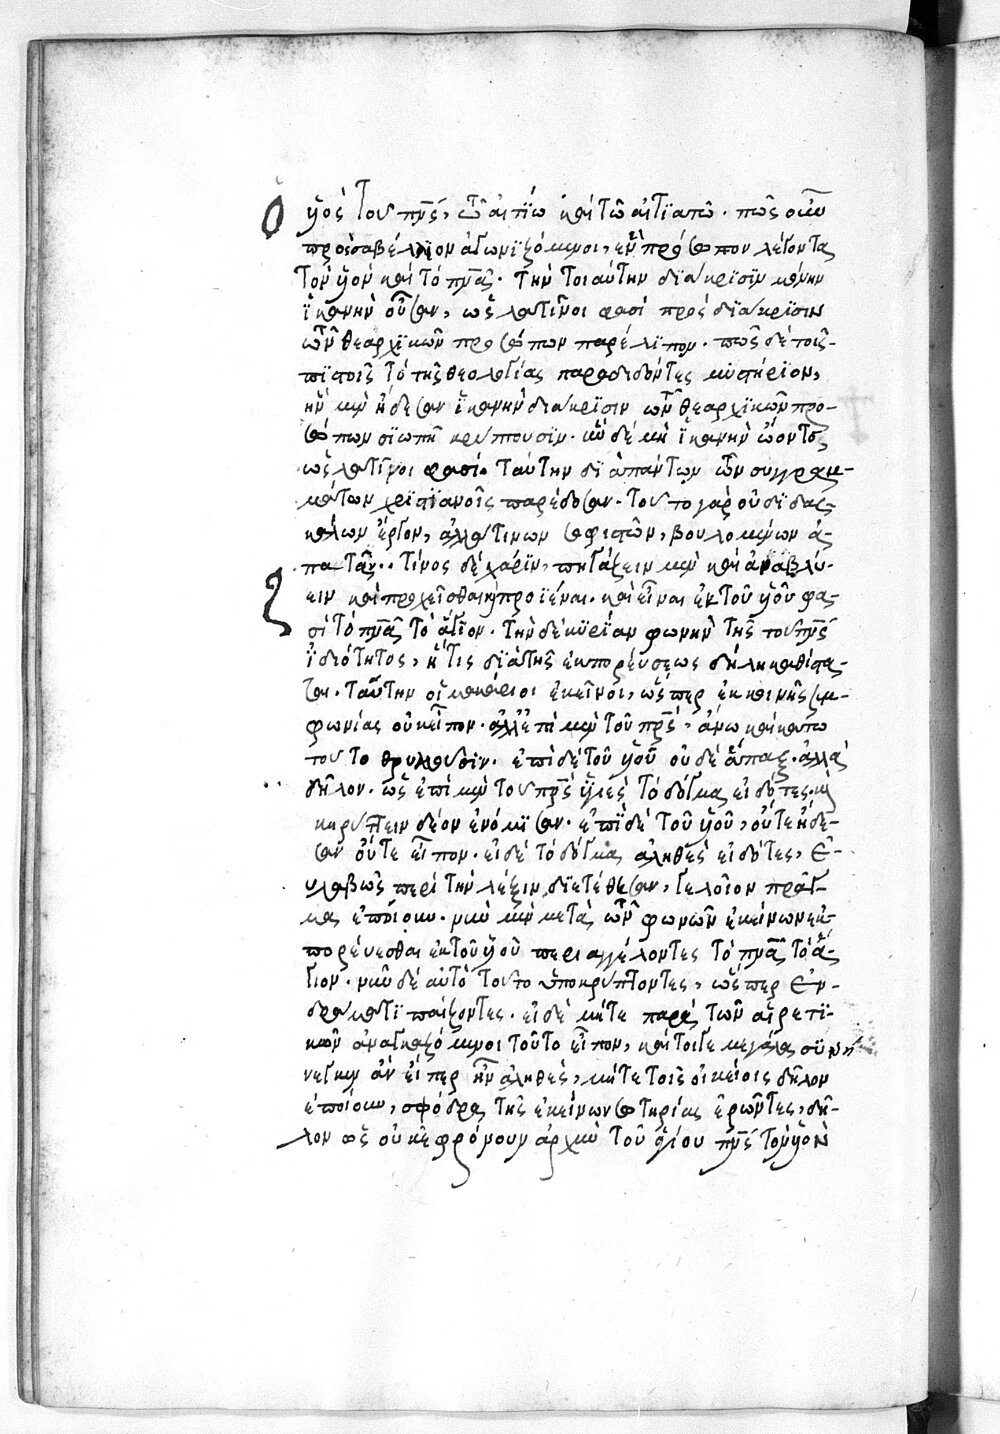 ὁ υἱὸς τοῦ πνς, τῶ αἰτίω καὶ τῶ αἰτιατῶ. πῶς οὖν
πρὸς σαβέλλιον ἀγωνιζόμενοι, ἓν πρόσωπον λέγοντα
τὸν υἱὸν καὶ τὸ πνα. τὴν τοιαύτην διάκρισιν μόνην
ἱκανὴν οὖσαν, ὡς λατῖνοι φασὶ πρὸς διάκρισιν
τῶν θεαρχικῶν προσώπων παρέλιπον. πῶς δὲ τοῖς
πιστοῖς τὸ τῆς θεολογίας παραδιδόντες μυστήριον,
ἣν μὲν ᾔδεσαν ἱκανὴν διάκρισιν τῶν θεαρχικῶν προ-
σώπων σιωπῆ κρύπτουσιν. τὴν δὲ μὴ ἱκανὴν
ὡς λατῖνοι φασί. ταύτην δι' ἁπάντων τῶν συγγραμ-
μάτων χριστιανοῖς παρέδοσαν. τοῦτο γὰρ οὐ διδασ-
κάλων ἔργον, ἀλλά τινων σοφιστῶν, βουλομένων ἀ-
πατᾶν. τίνος δὲ χάριν, πηγάζειν μὲν καὶ ἀναβλύ-
ζειν καὶ προχεῖσθαι καὶ προϊέναι. καὶ εἶναι ἐκ τοῦ υἱοῦ φα-
σὶ τὸ πνα τὸ ἅγιον. τὴν δὲ κυρίαν φωνὴν τῆς τοῦ πνς
ἰδιότητος, ἥτις διὰ τῆς ἐκπορεύσεως δήλη καθίστα-
ται. ταύτην οἱ μακάριοι ἐκεῖνοι, ὥσπερ ἐκ κοινῆς συμ-
φωνίας οὐκ εἶπον. ἀλλ' ἐπὶ μὲν τοῦ πρς, ἄνω καὶ κάτω
τοῦτο θρυλλοῦσιν. ἐπὶ δὲ τοῦ υἱοῦ οὐδὲ ἅπαξ. ἀλλὰ
δῆλον. ὡς ἐπὶ μὲν τοῦ πρς ὑγιὲς τὸ δόγμα εἰδότες, καὶ
κηρύττειν δέον ἐνόμισαν. ἐπὶ δὲ τοῦ υἱοῦ, οὔτε ᾔδε-
σαν οὔτε εἶπον. εἰ δὲ τὸ δόγμα ἀληθὲς εἰδότες, ἐ-
υλαβῶς περὶ τὴν λέξιν διετέθησαν, γελοῖον πρᾶγ-
μα ἐποίουν. νῦν μὲν μετὰ τῶν φωνῶν ἐκείνων ἐκ-
πορεύεσθαι ἐκ τοῦ υἱοῦ περιαγγέλοντες τὸ πνα τὸ ἅ-
γιον. νῦν δὲ αὐτὸ τοῦτο ὑποκρύπτοντες, ὥσπερ ἐν
δράματι παίζοντες. εἰ δὲ μήτε παρὰ τῶν αἱρετι-
κῶν ἀναγκαζόμενοι τοῦτο εἶπον, καί τοιγε μεγάλα συνή
νεγκεν ἂν εἴπερ ἦν ἀληθὲς, μήτε τοῖς οἰκείοις δῆλον
ἐποίουν, σφόδρα τῆς ἐκείνων σωτηρίας ἐρῶντες, δῆ-
λον ὡς οὐκ ἐφρόνουν ἀρχὴν τοῦ ἁγίου πνς τὸν υἱὸν